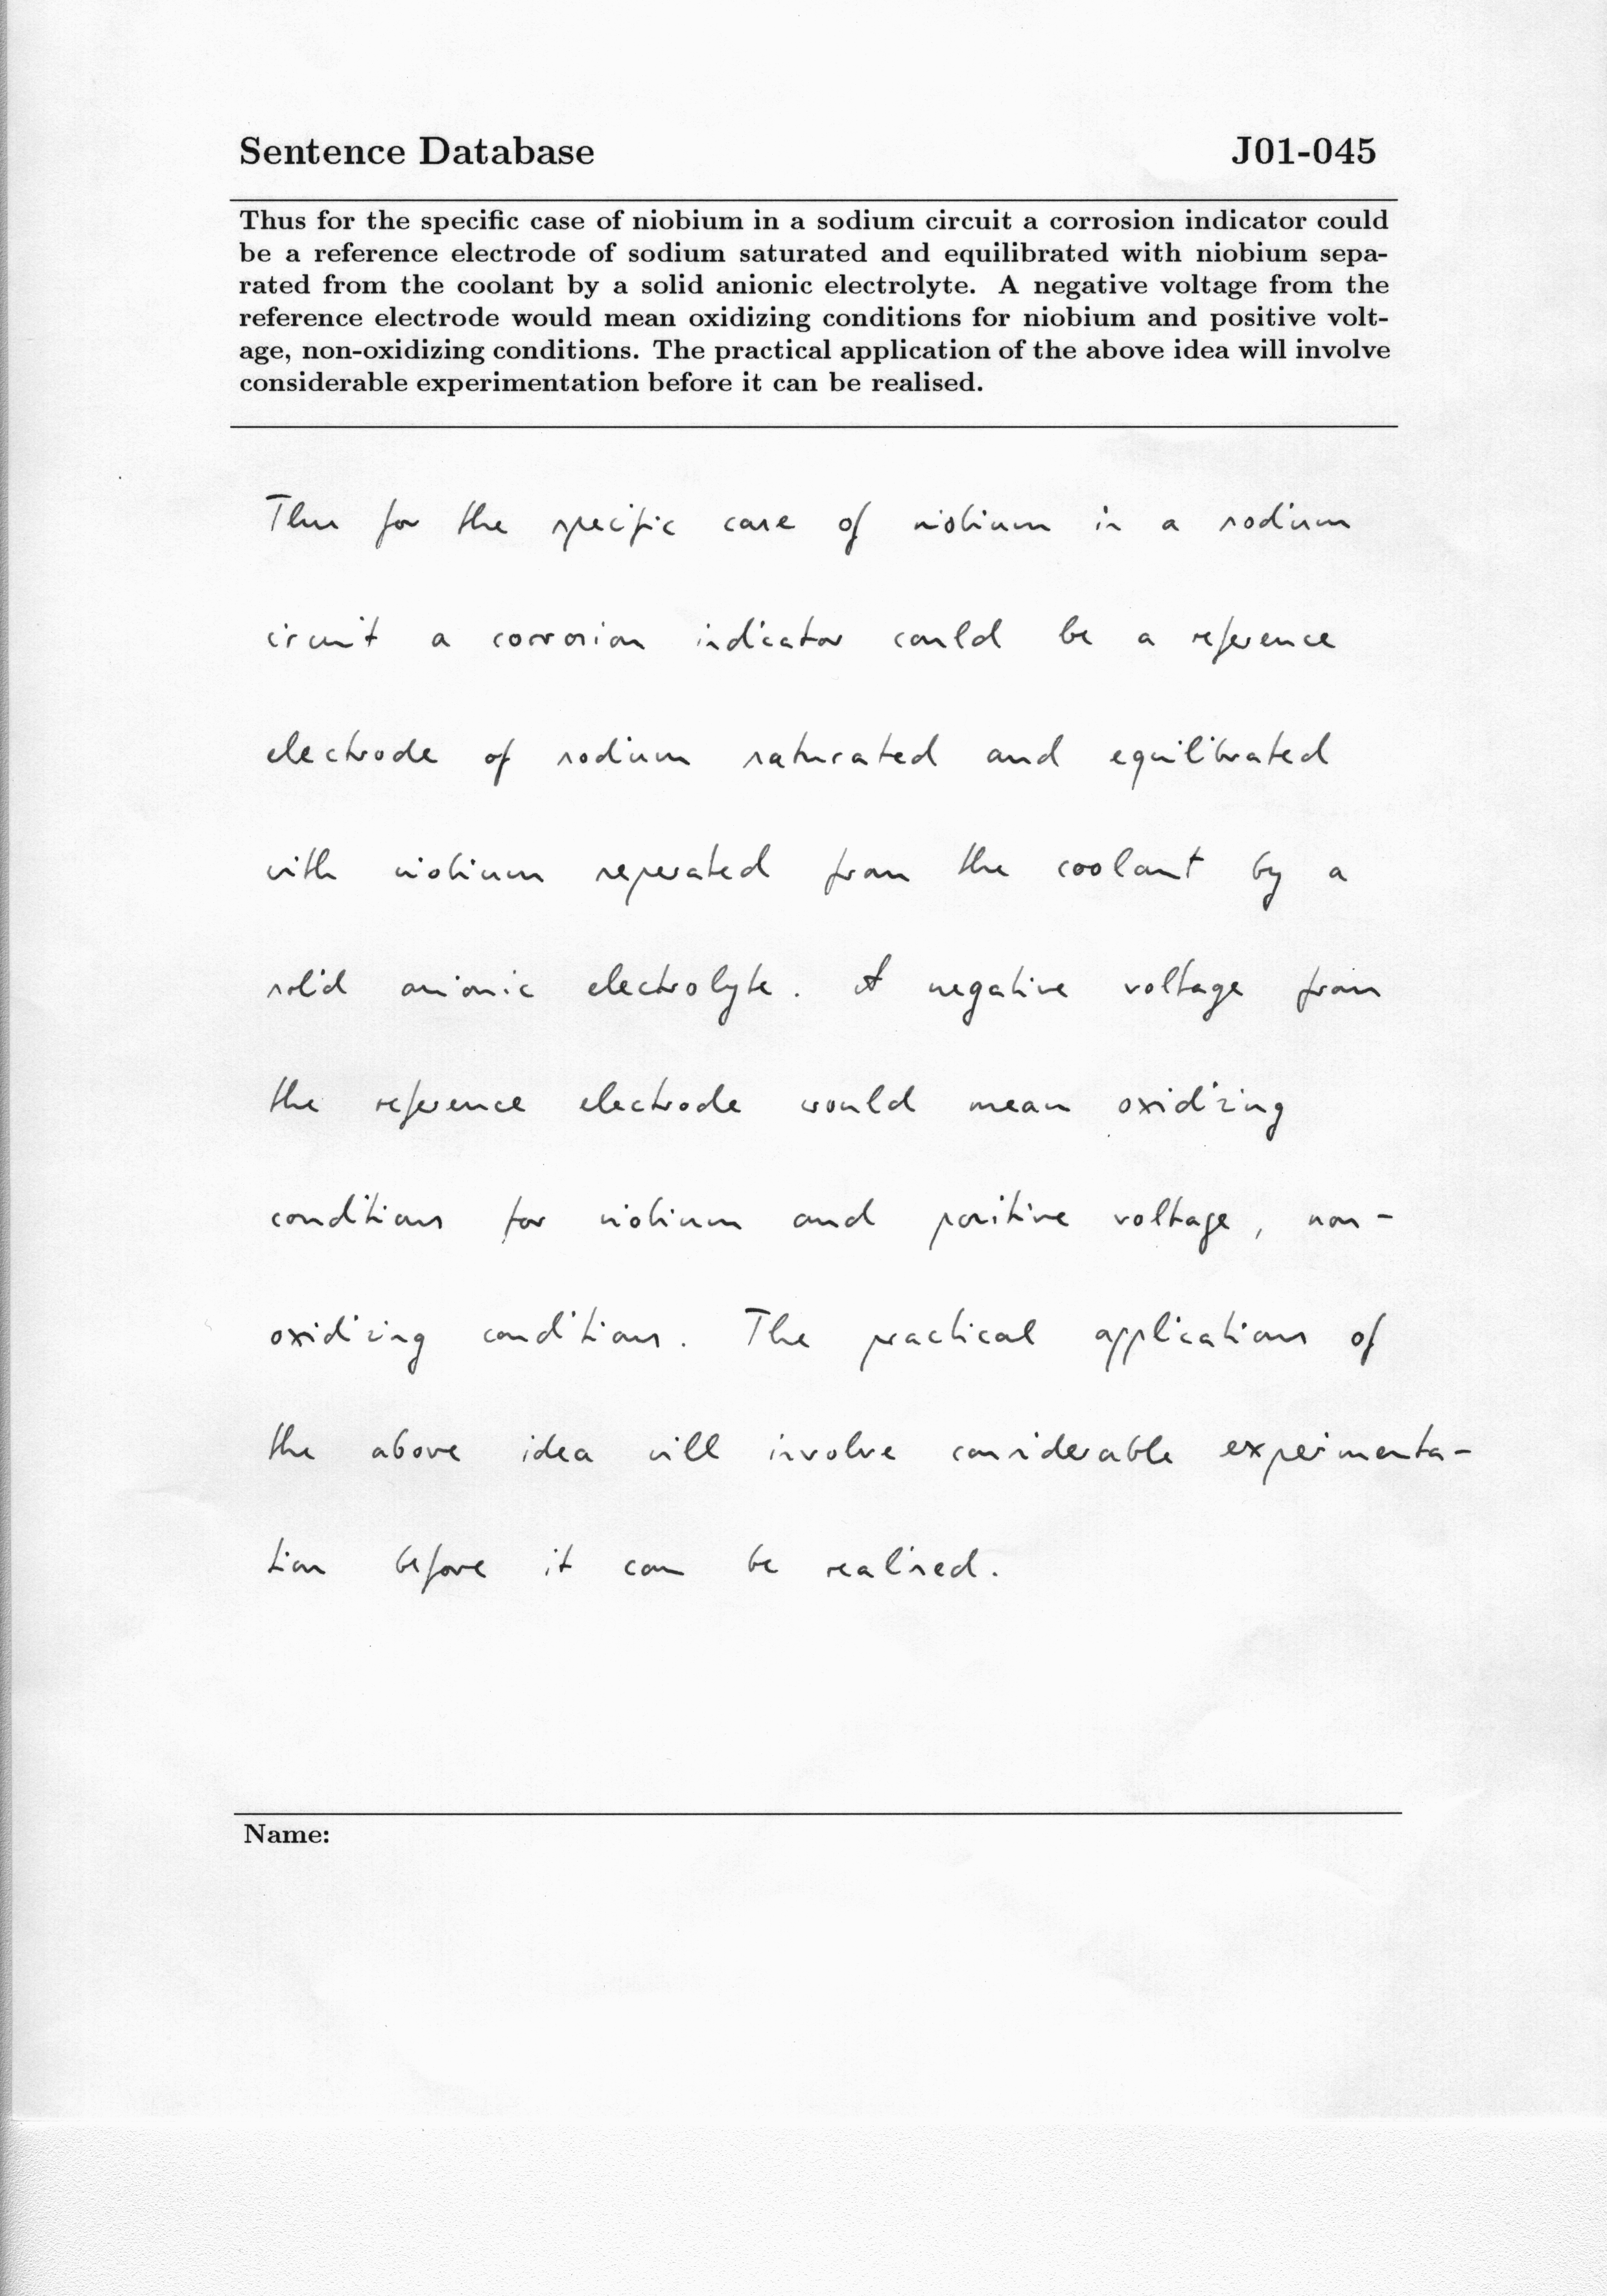 Sentence Database J01-045
Thus for the specific case of niobium in a sodium circuit a corrosion indicator could
be a reference electrode of sodium saturated and equilibrated with niobium sepa-
rated from the coolant by a solid anionic electrolyte. A negative voltage from the
reference electrode would mean oxidizing conditions for niobium and positive volt-
age, non-oxidizing conditions. The practical application of the above idea will involve
considerable experimentation before it can be realised.
Thus for the specific case of niobium in a sodium
circuit a corrosion indicator could be a reference
electrode of sodium saturated and equilibrated
with niobium seperated from the coolant by a
solid anionic electrolyte. A negative voltage from
the reference electrode would mean oxidizing
conditions for niobium and positive voltage, non-
oxidizing conditions. The practical applications of
the above idea will involve considerable experimenta-
tion before it can be realised.
Name: